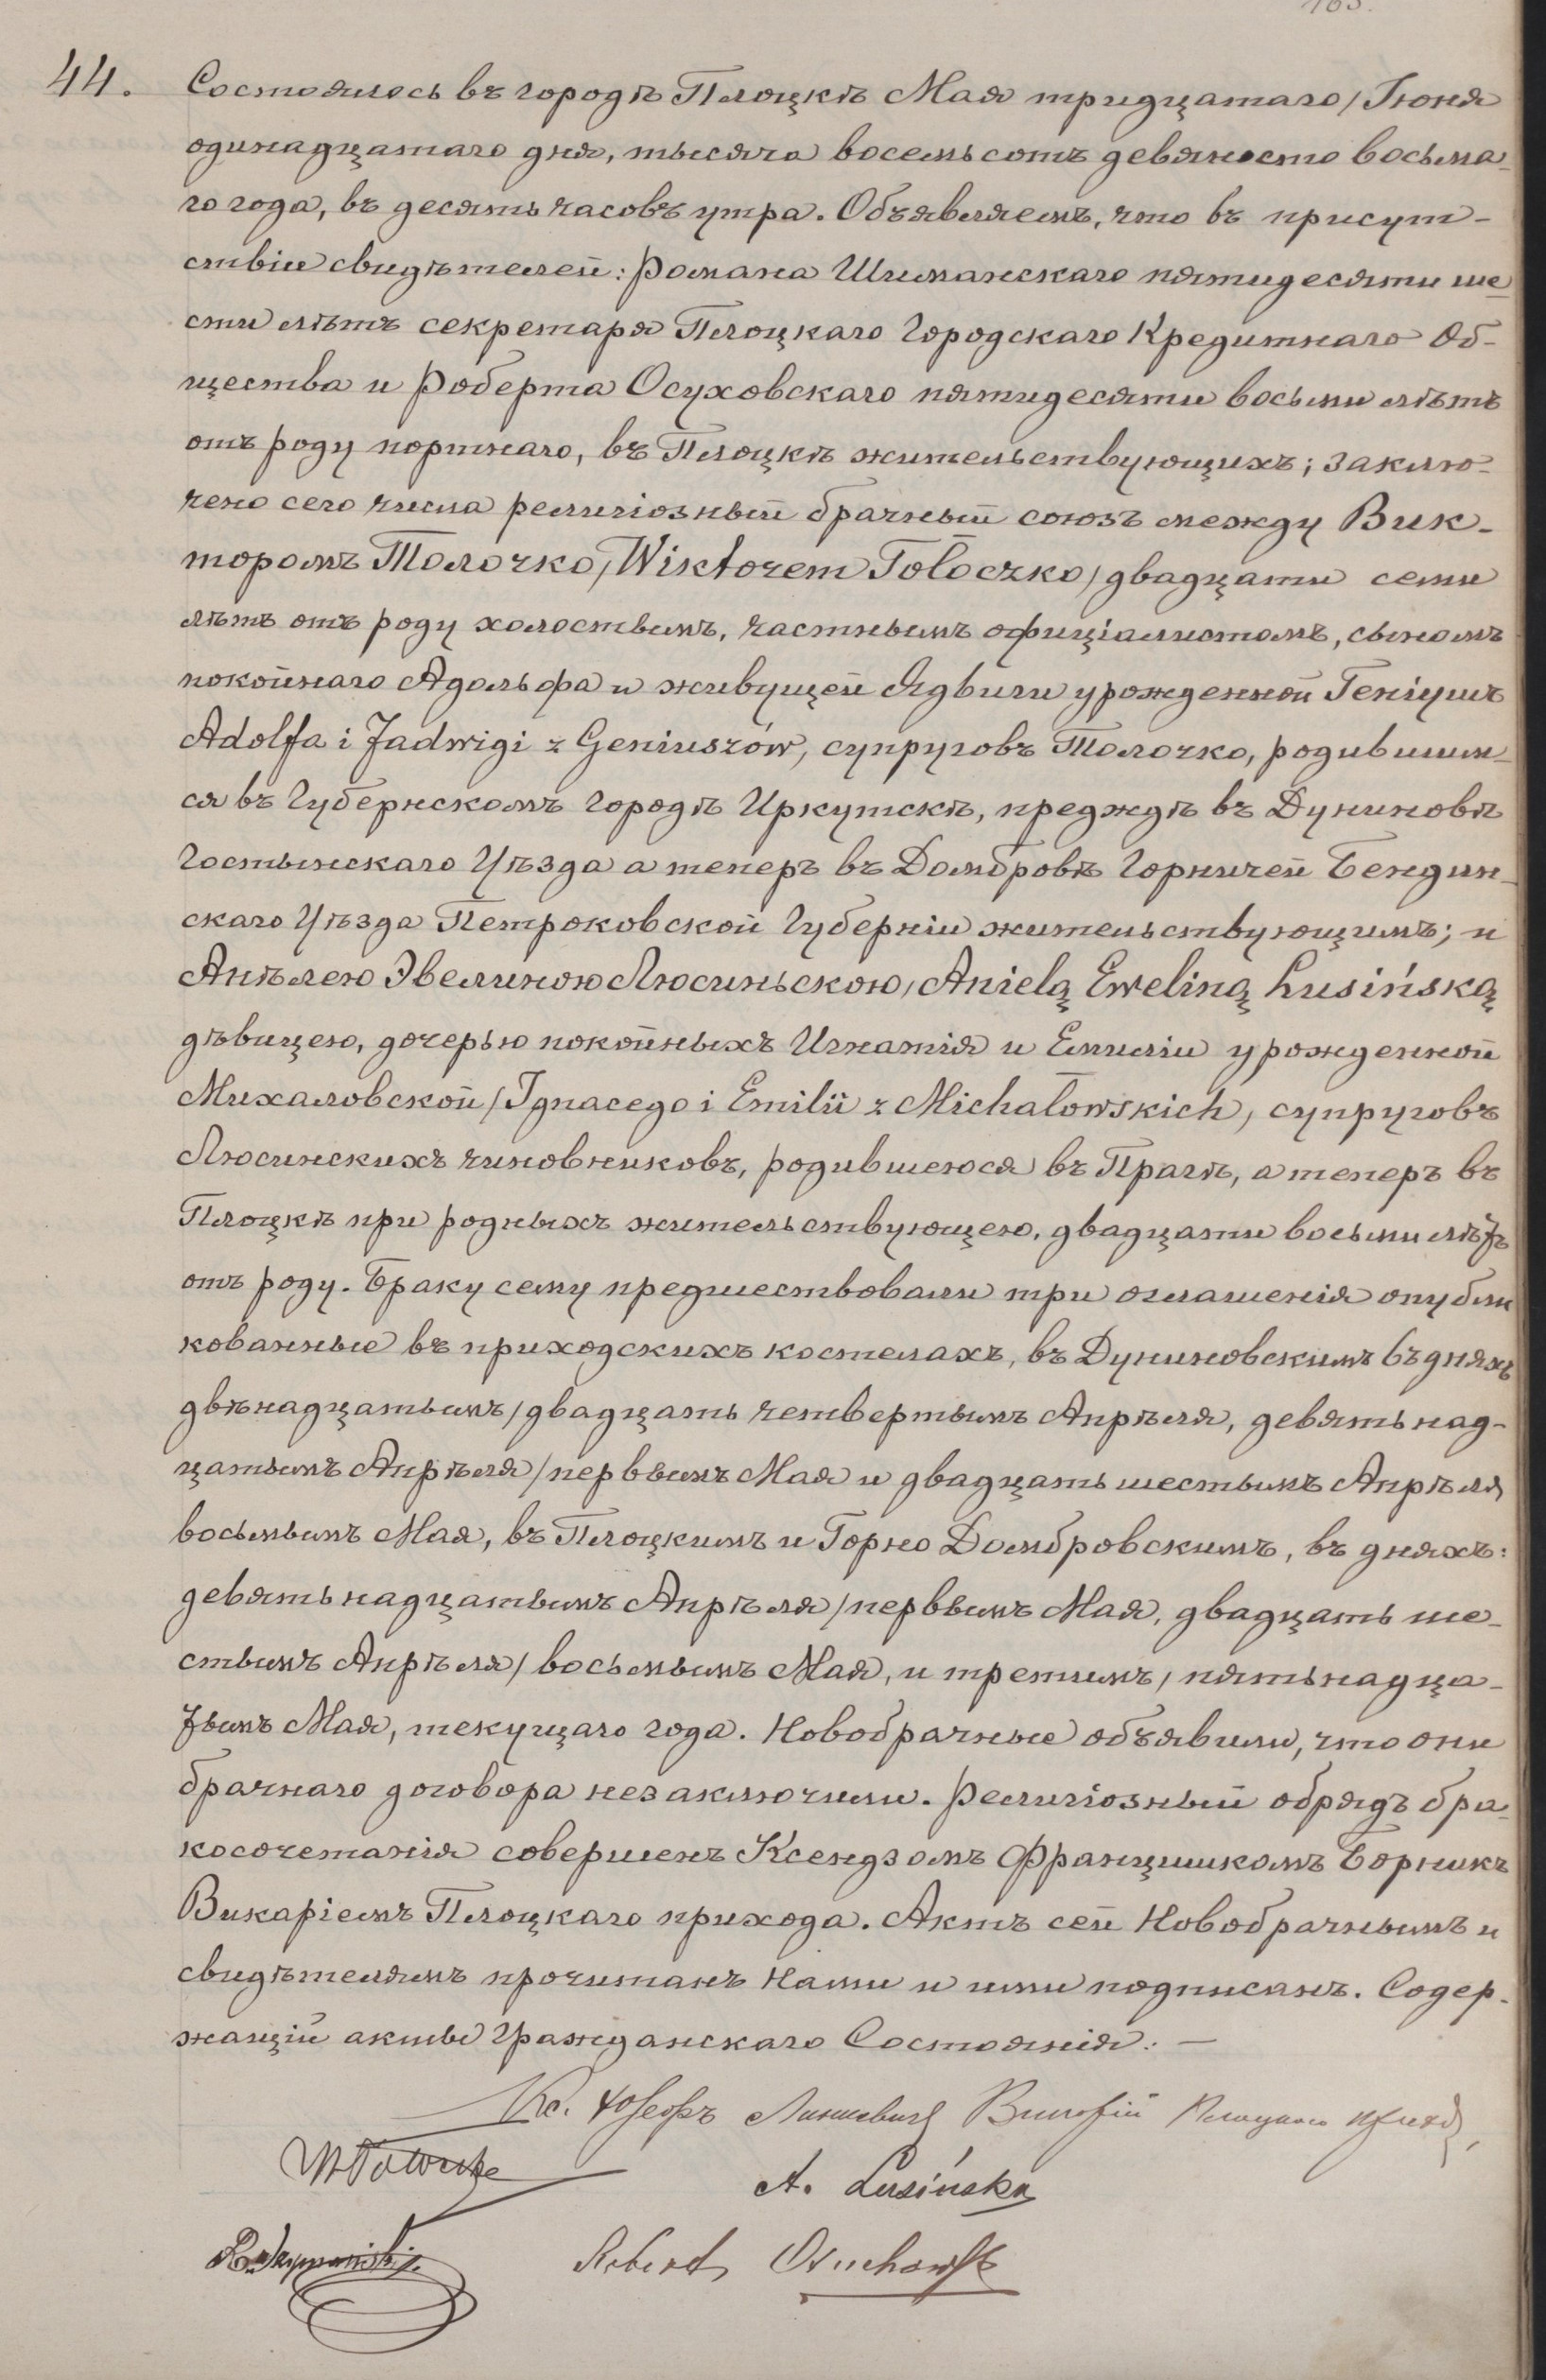 44.
Состоялось въ городѣ Плоцкѣ Мая тридцатаго / Іюня
одинадцатаго дня, тысяча восемьсотъ девяносто восьма-
го года, въ десять часовъ утра. Объявляемъ, что въ присут-
ствіи свидѣтелей: Романа Шиманскаго пятидесяти ше-
сти лѣтъ секретаря Плоцкаго Городскаго Кредитнаго Об-
щества и Роберта Осуховскаго пятидесяти восьми лѣтъ
отъ роду портнаго, въ Плоцкѣ жительствующихъ; заклю-
чено сего числа религіозный брачный союзъ между Вик-
торомъ Толочко, /Wiktorem Tołoczko/ двадцати семи
лѣтъ отъ роду холостымъ, частнымъ офиціалистомъ, сыномъ
покойнаго Адольфа и живущей Ядвиги урожденной Геніушъ
Adolfa i Jadwigi z Geniuszów, супруговъ Толочко, родившим-
ся въ Губернскомъ городѣ Иркутскѣ, преджде въ Дуниновѣ
Гостынскаго Уѣзда а теперъ въ Домбровѣ Горничей Бендин-
скаго Уѣзда Петроковской Губерніи жительствующимъ; и
Анѣлею Эвелиною Люсиньскою, Anielą Eweliną Lusińską
дѣвицею, дочерью покойныхъ Игнатія и Емиліи урожденной
Михаловской /Ignacego i Emilii z Michałowskich, супруговъ
Люсинскихъ чиновниковъ, родившеюся въ Прагѣ, а теперъ въ
Плоцкѣ при родныхъ жительствующею, двадцати восьми лѣтъ
отъ роду. Браку сему предшествовали три оглашенія опубли
кованные въ приходскихъ костелахъ, въ Дуниновскимъ въ дняхъ
двѣнадцатымъ / двадцать четвертымъ Апрѣля, девятьнад-
цатымъ Апрѣля / первымъ Мая и двадцать шестымъ Апрѣля
восьмымъ Мая, въ Плоцкимъ и Горно Домбровскимъ, въ дняхъ:
девятьнадцатымъ Апрѣля / первымъ Мая, двадцать ше-
стымъ Апрѣля / восьмымъ Мая, и третимъ / пятьнадца-
тымъ Мая, текущаго года. Новобрачные объявили, что они
брачнаго договора незаключили. Религіозный обрядъ бра-
косочетанія совершенъ Ксендзомъ Францишкомъ Борникъ
Викаріемъ Плоцкаго прихода. Актъ сей Новобрачнымъ и
свидѣтелямъ прочитанъ Нами и ими подписанъ. Содер-
жащій акты Гражданскаго Состоянія. —
Кс. Іосефъ Викарій Плоцкаго прихода
A. Lusińska
R. Szymański
Robert Osuchowski